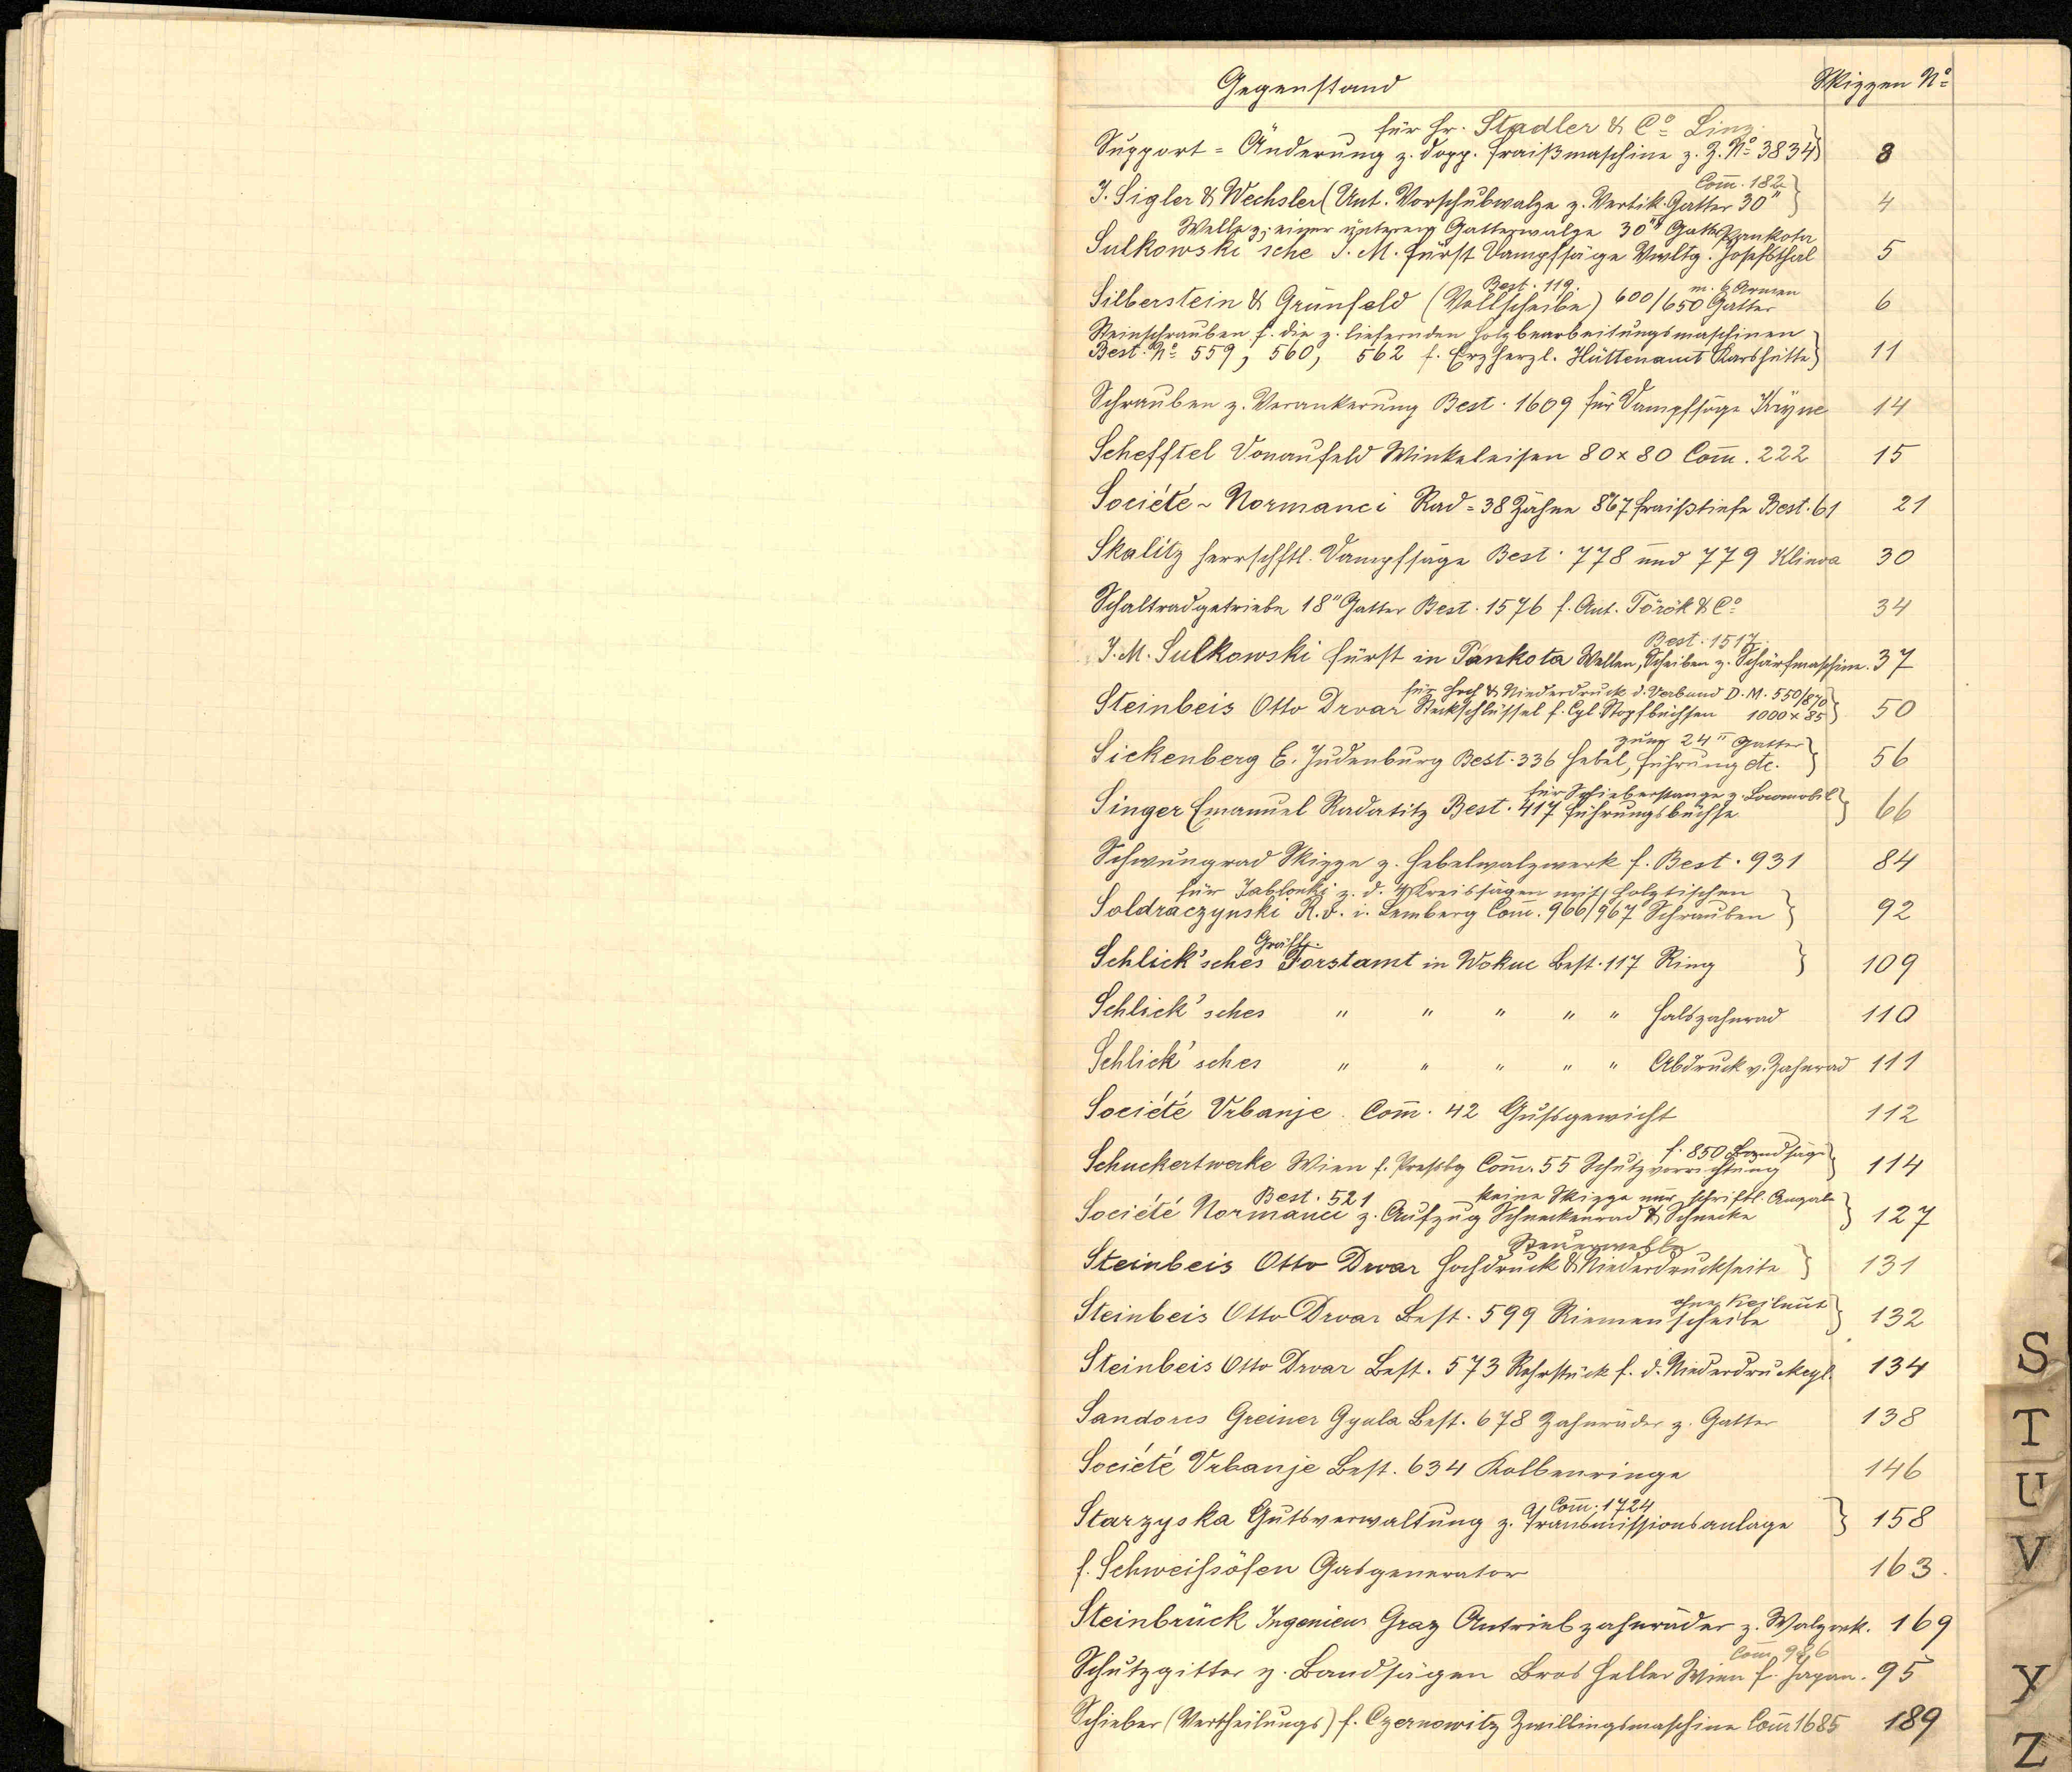 Gegenstand Skizzen No
für Hr. Stadler & Co Linz
Support = Änderung z. dopp. Fraißmaschine z. Z. No 3834 } 3
Com̄. 182
J. Sigler & Wechsler (Unt. Vorschubwalze z. Vertik. Gatter 30" } 4
Welle z. einer unteren Gatterwalze 30"" Gatter Pankota
Sulkowski'sche J. M. Fürst Dampfsäge Vwltg. Josefsthal 5
Best. 119. m. 6 Armen
Silberstein & Grünfeld (Vollscheibe) 600/650 Gatter 6
Steinschrauben f. die z. liefernden Holzbearbeitungsmaschinen
Best. No 559, 560, 562 f. Erzherzl. Hüttenamt Karlshütte } 11
Schrauben z. Verankerung Best. 1609 für Dampfsäge Kryne 14
Schefftel Donaufeld Winkeleisen 80 x 80 Com̄. 222 15
Société ~ Normanci Rad = 38 Zähne 8"67 Fraißtiefe Best. 61 21
Skalitz Herrschftl. Dampfsäge Best. 778 und 779 Klinva 30
Schaltradgetriebe 18" Gatter Best. 1576 f. Ant. Török & Co 34
Best. 1517.
J. M. Sulkowski Fürst in Pankota Wellen, Scheiben z. Schärfmaschine. 37
für Hoch & Niederdruck d. Verbund D. M. 550/870
Steinbeis Otto Drvar Steckschlüssel f. Cyl. Stopfbüchsen 1000 x 85 } 50
zum 24" Gatter
Sickenberg E. Judenburg Best. 336 Hebel, Führung etc. } 56
für Schieberstange z. Locomobil
Singer Emanuel Radatitz Best. 417 Führungsbüchse } 66
Schwungrad Skizze z. Hebelwalzwerk f. Best. 931 84
für Jablonki z. d. 4 Kreissägen mit Holztischen
Soldraczynski R. v. i. Lemberg Com̄. 966/967 Schrauben } 92
Gräfl.
Schlick'sches Forstamt in Wokuc Best. 117 Ring } 109
Schlick'sches " " " " " Halszahnrad 110
Schlick'sches " " " " " Abdruck v. Zahnrad 111
Société Vrbanje Com̄. 42 Gußgewicht 112
f. 850 Bandsäge
Schuckertwerke Wien f. Preßbg Com̄. 55 Schutzvorrichtung } 114
Best. 521 keine Skizze nur schriftl. Angabe
Société Normanci z. Aufzug Schneckenrad & Schnecke } 127
Steuerwelle
Steinbeis Otto Drvar Hochdruck & Niederdruckseite } 131
ohne Keilnut
Steinbeis Otto Drvar Best. 599 Riemenscheibe } 132
Steinbeis Otto Drvar Best. 573 Rohrstück f. d. Niederdruckcyl. 134
Sandorcs Greiner Gyula Best. 678 Zahnräder z. Gatter 138
Société Vrbanje Best. 634 Kolbenringe 146
Com̄. 1724
Starzyska Gutsverwaltung z. Transmissionsanlage } 158
f. Schweißöfen Gasgenerator 163.
Steinbrück Ingenieur Graz Antriebzahnräder z. Walzwk. 169
Com̄ 986
Schutzgitter z. Bandsägen Bros Heller Wien f. Japan. 95
Schieber (Vertheilungs) f. Czernowitz Zwillingsmaschine Com̄ 1685 189
S
T
U
V
Y
Z